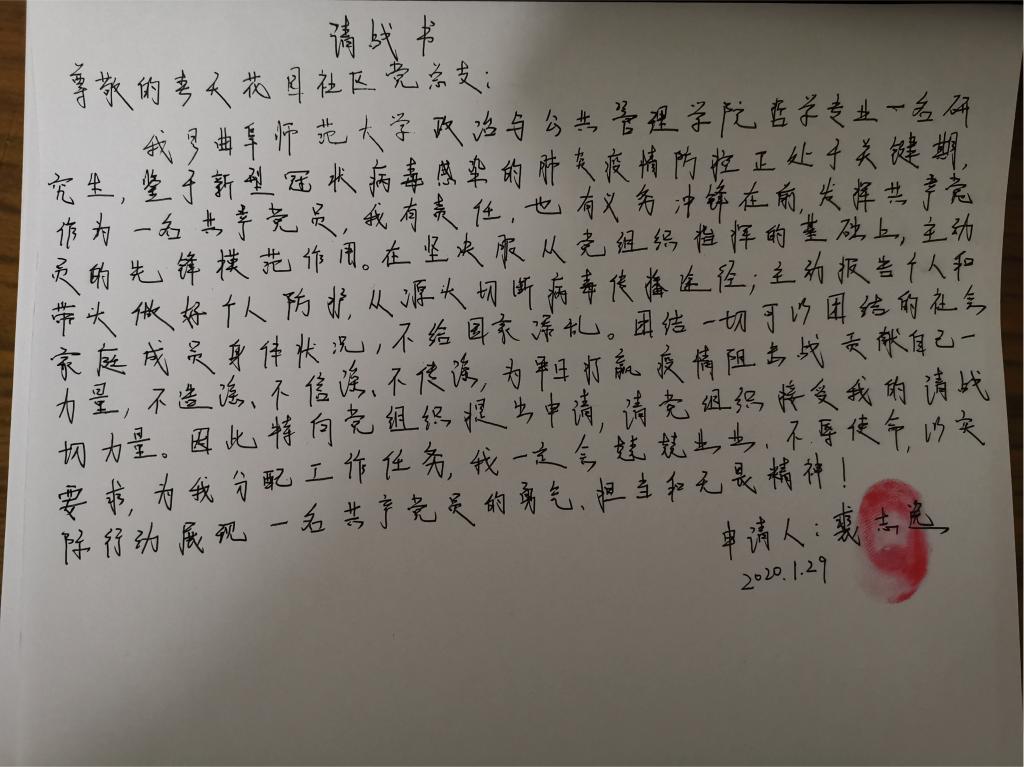 请战书
尊敬的春天花园社区党总支：
我是曲阜师范大学政治与公共管理学院哲学专业一名研
究生，鉴于新型冠状病毒感染的肺炎疫情防控正处于关键期，
作为一名共产党员，我有责任，也有义务冲锋在前，发挥共产党
员的先锋模范作用。在坚决服从党组织指挥的基础上，主动
带头做好个人防护，从源头切断病毒传播途径；主动报告个人和
家庭成员身体状况，不给国家添乱。团结一切可以团结的社会
力量，不造谣、不信谣、不传谣，为早日打赢疫情阻击战贡献自己一
切力量。因此特向党组织提出申请，请党组织接受我的请战
要求，为我分配工作任务，我一定会兢兢业业、不辱使命，以实
际行动展现一名共产党员的勇气、担当和无畏精神！
申请人：裴志
2020.1.29